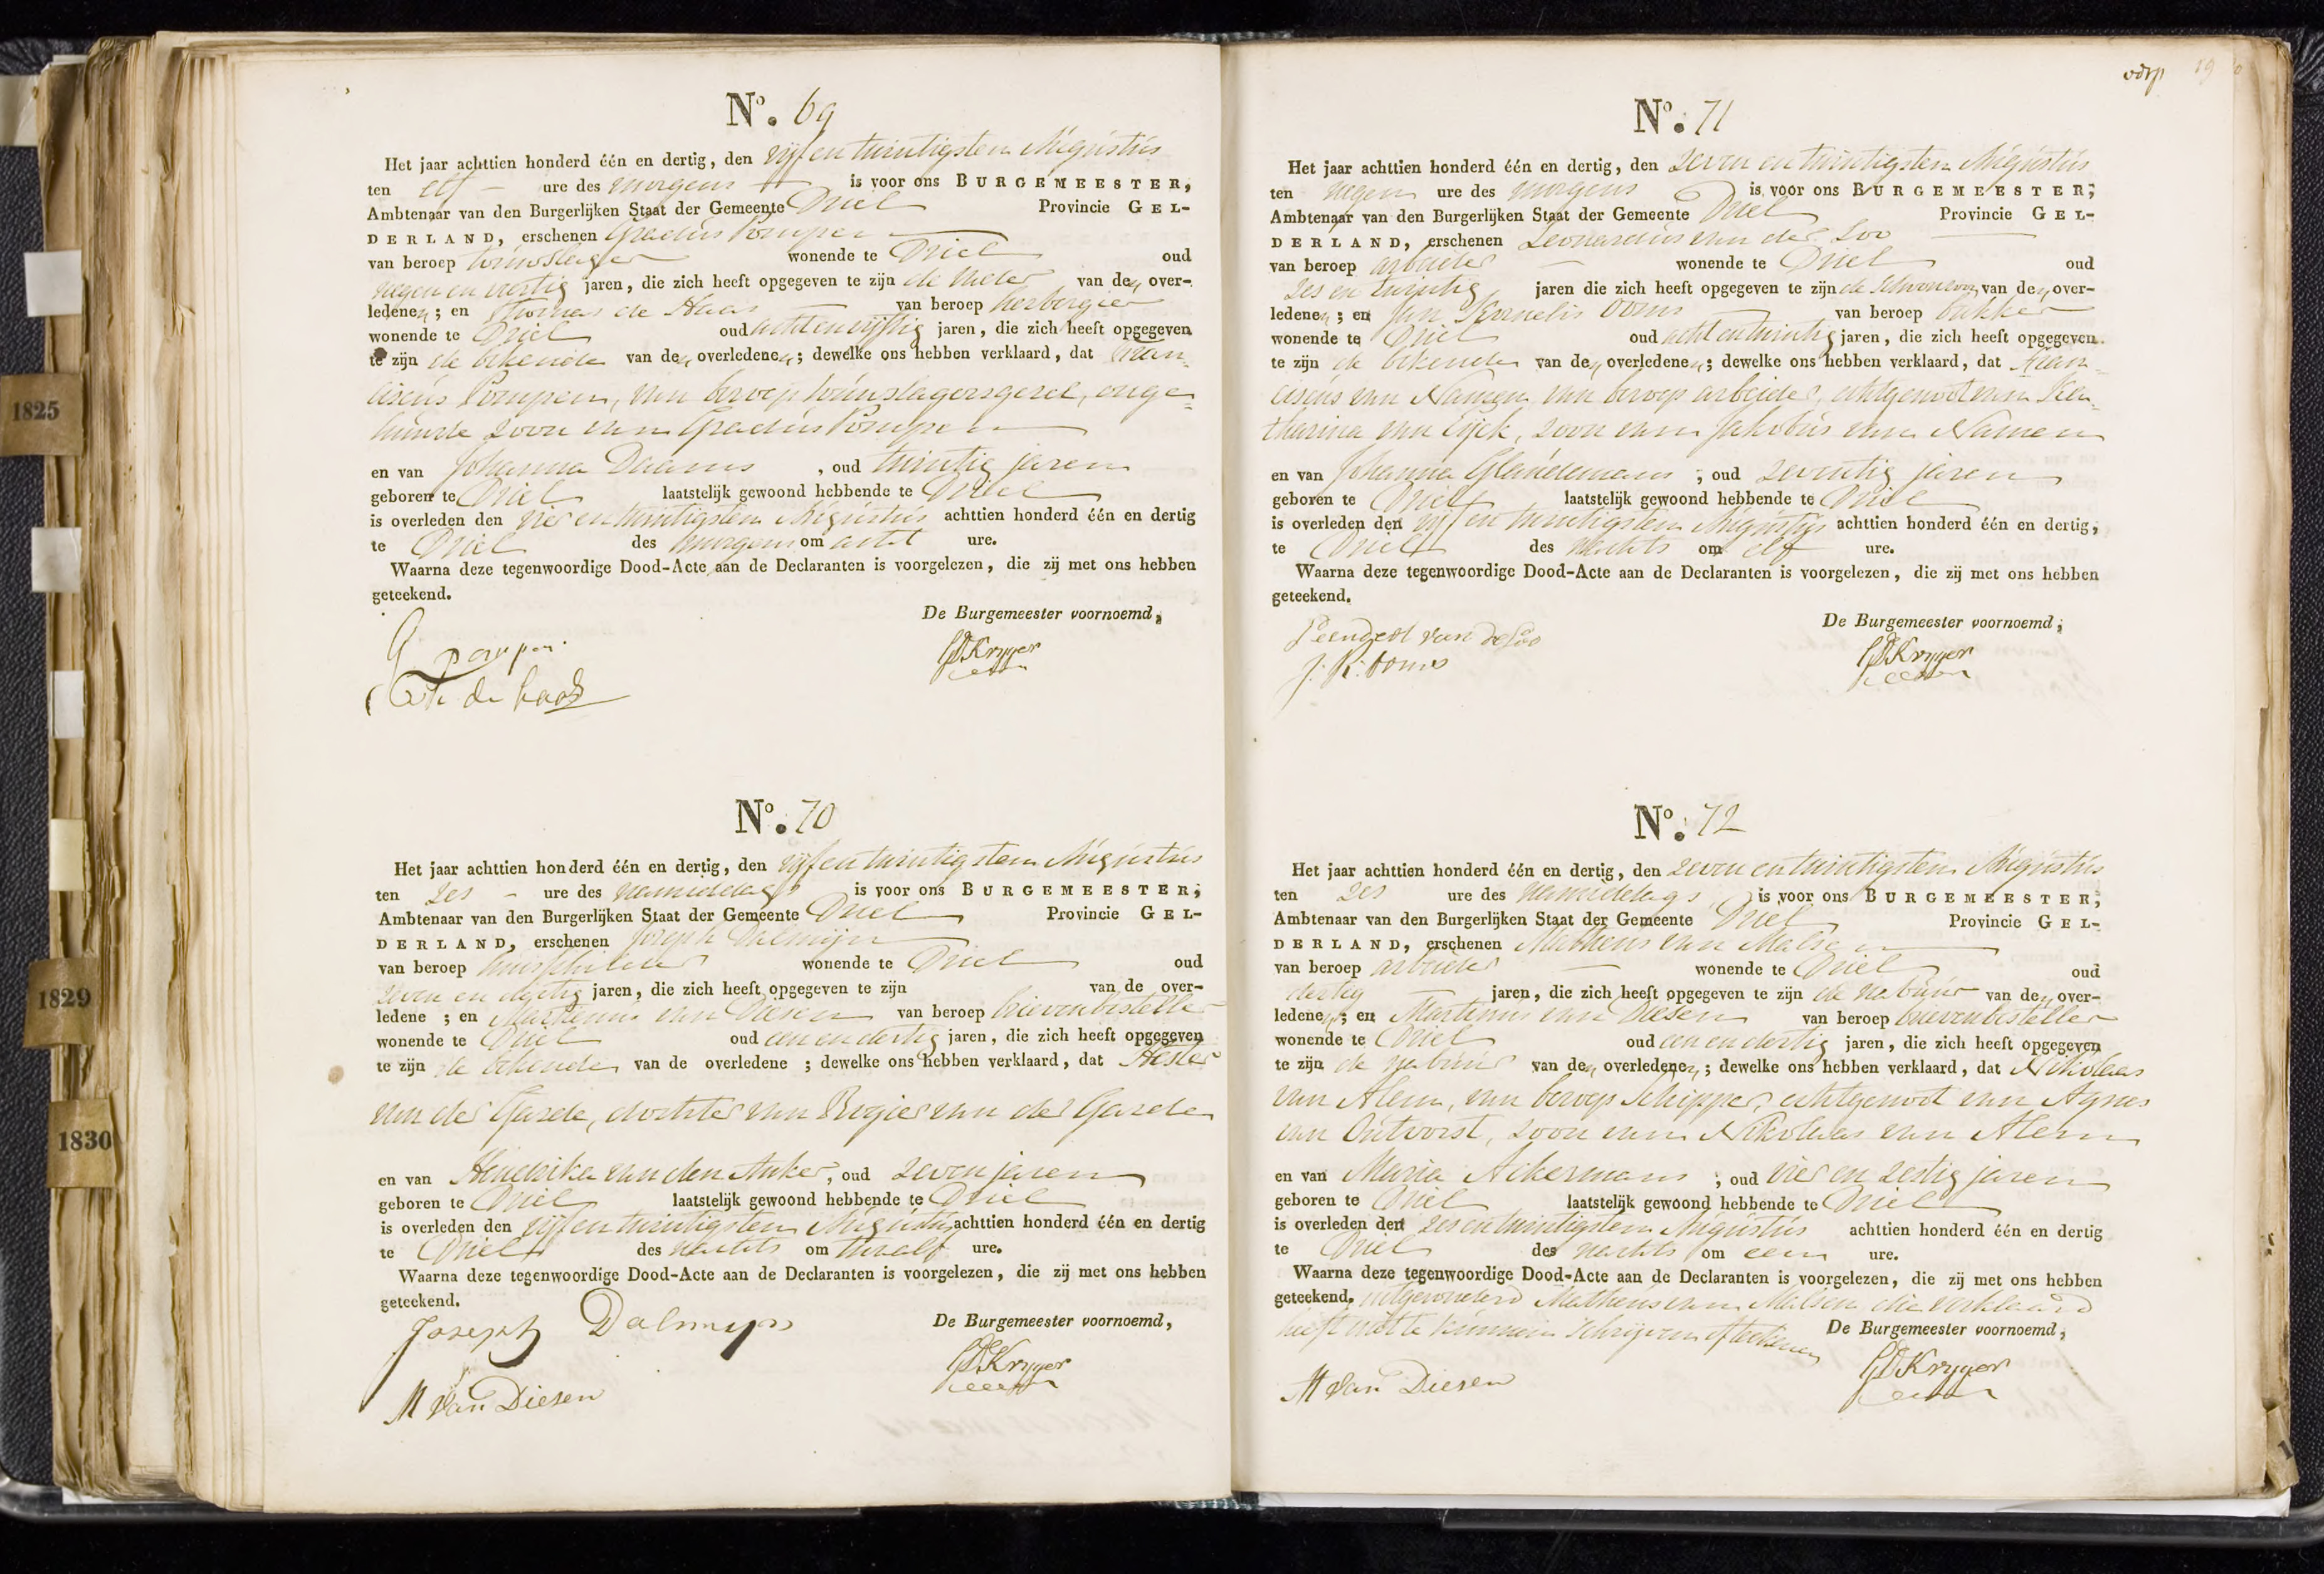 1825
1829
1830
N.º 69
Het jaar achttien honderd één en dertig, den vijf en twintigsten Augustus
ten elf - ure des morgens is voor ons BURGEMEESTER,
Ambtenaar van den Burgerlijken Staat der Gemeente Driel Provincie GEL-
DERLAND, erschenen Gradus Pompen
van beroep touwslager wonende te Driel oud
negen en veertig jaren, die zich heeft opgegeven te zijn de vader van den over-
ledenen; en Thomas de Haas van beroep herbergier
wonende te Driel oud acht en vijftig jaren, die zich heeft opgegeven
te zijn de bekende van den overledenen; dewelke ons hebben verklaard, dat Fran-
ciscus Pompen, van beroep touwslagersgezel, onge=
huwde zoon van Gradus Pompen
en van Johanna Daams, oud twintig jaren
geboren te Driel laatstelijk gewoond hebbende te Driel
is overleden den vier en twintigsten Augustus achttien honderd één en dertig
te Driel des morgens om acht ure.
Waarna deze tegenwoordige Dood-Acte aan de Declaranten is voorgelezen, die zij met ons hebben
geteekend.
De Burgemeester voornoemd,
G pompen
de haas
Kryger
N.º 70
Het jaar achttien honderd één en dertig, den vijf en twintigsten Augustus
ten zes - ure des namiddags is voor ons BURGEMEESTER,
Ambtenaar van den Burgerlijken Staat der Gemeente Driel Provincie GEL-
DERLAND, erschenen Joseph Dalmijn
van beroep huisschilder wonende te Driel oud
zeven en dertig jaren, die zich heeft opgegeven te zijn van de over-
ledene ; en Martinus van Diesen van beroep brievenbesteller
wonende te Driel oud een en dertig jaren, die zich heeft opgegeven
te zijn de bekenden van de overledene ; dewelke ons hebben verklaard, dat Hester
van der Garde, dochter van Rogier van der Garde
en van Hendrika van den Anker, oud zeven jaren
geboren te Driel laatstelijk gewoond hebbende te Driel
is overleden den vijf en twintigsten Augustus achttien honderd één en dertig
te Driel des nachts om twaalf ure.
Waarna deze tegenwoordige Dood-Acte aan de Declaranten is voorgelezen, die zij met ons hebben
geteekend.
Joseph Dalmijn
De Burgemeester voornoemd,
Kryger
M van Diesen
N.º 71
Het jaar achttien honderd één en dertig, den zeven en twintigsten Augustus
ten negen ure des morgens is voor ons BURGEMEESTER,
Ambtenaar van den Burgerlijken Staat der Gemeente Driel Provincie GEL-
DERLAND, erschenen Leonardus van der Loo
van beroep arbeider wonende te Driel oud
zes en twintig jaren die zich heeft opgegeven te zijn de schoonzoon van den over-
ledenen; en Jan Kornelis Ooms van beroep bakker
wonende te Driel oud acht en twintig jaren, die zich heeft opgegeven
te zijn de bekende van den overledenen; dewelke ons hebben verklaard, dat Fran=
ciscus van Namen van beroep arbeider, echtgenoot van Ka=
tharina van Eijck, zoon van Jakobus van Namen
en van Johanna Glaudemans ; oud zeventig jaren
geboren te Driel laatstelijk gewoond hebbende te Driel
is overleden den vijf en twintigsten Augustus achttien honderd één en dertig,
te Driel des nachts om elf ure.
Waarna deze tegenwoordige Dood-Acte aan de Declaranten is voorgelezen, die zij met ons hebben
geteekend.
De Burgemeester voornoemd,
van de Loo
J. K. Ooms
Kryger
N.º 72
Het jaar achttien honderd één en dertig, den zeven en twintigsten Augustus
ten zes ure des namiddags is voor ons BURGEMEESTER,
Ambtenaar van den Burgerlijken Staat der Gemeente Driel Provincie GEL-
DERLAND, erschenen Matheus van Malsen
van beroep arbeider wonende te Driel oud
dertig jaren, die zich heeft opgegeven te zijn de nabuur van den over-
ledenen; en Martinus van Diesen van beroep brievenbesteller
wonende te Driel oud een en dertig jaren, die zich heeft opgegeven
te zijn de nabuur van den overledenen; dewelke ons hebben verklaard, dat Nikolaas
van Alem, van beroep schipper, echtgenoot van Agnes
van Outvorst, zoon van Nikolaas van Alem
en van Maria Ackermans ; oud vier en zestig jaren
geboren te Driel laatstelijk gewoond hebbende te Driel
is overleden den zes en twintigsten Augustus achttien honderd één en dertig
te Driel des nachts om een ure.
Waarna deze tegenwoordige Dood-Acte aan de Declaranten is voorgelezen, die zij met ons hebben
geteekend, uitgezonderd Matheus van Malsen die verklaard
heeft niet te kunnen schrijven of teekenen
De Burgemeester voornoemd,
M van Diesen
Kryger